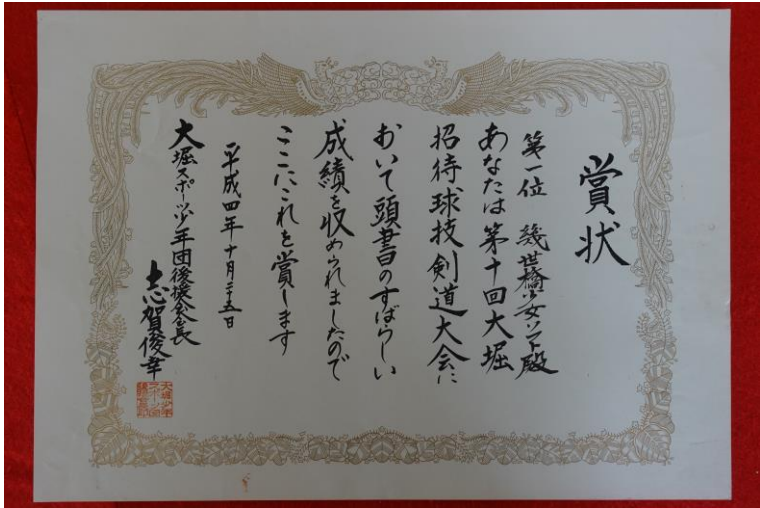 賞状
第一位 幾世橋少女ソフト殿
あなたは第十回大堀
招待球技剣道大会に
おいて頭書のすばらしい
成績を収められましたので
ここにこれを賞します
平成四年十月二十五日
大堀スポーツ少年団後援会会長
志賀俊幸